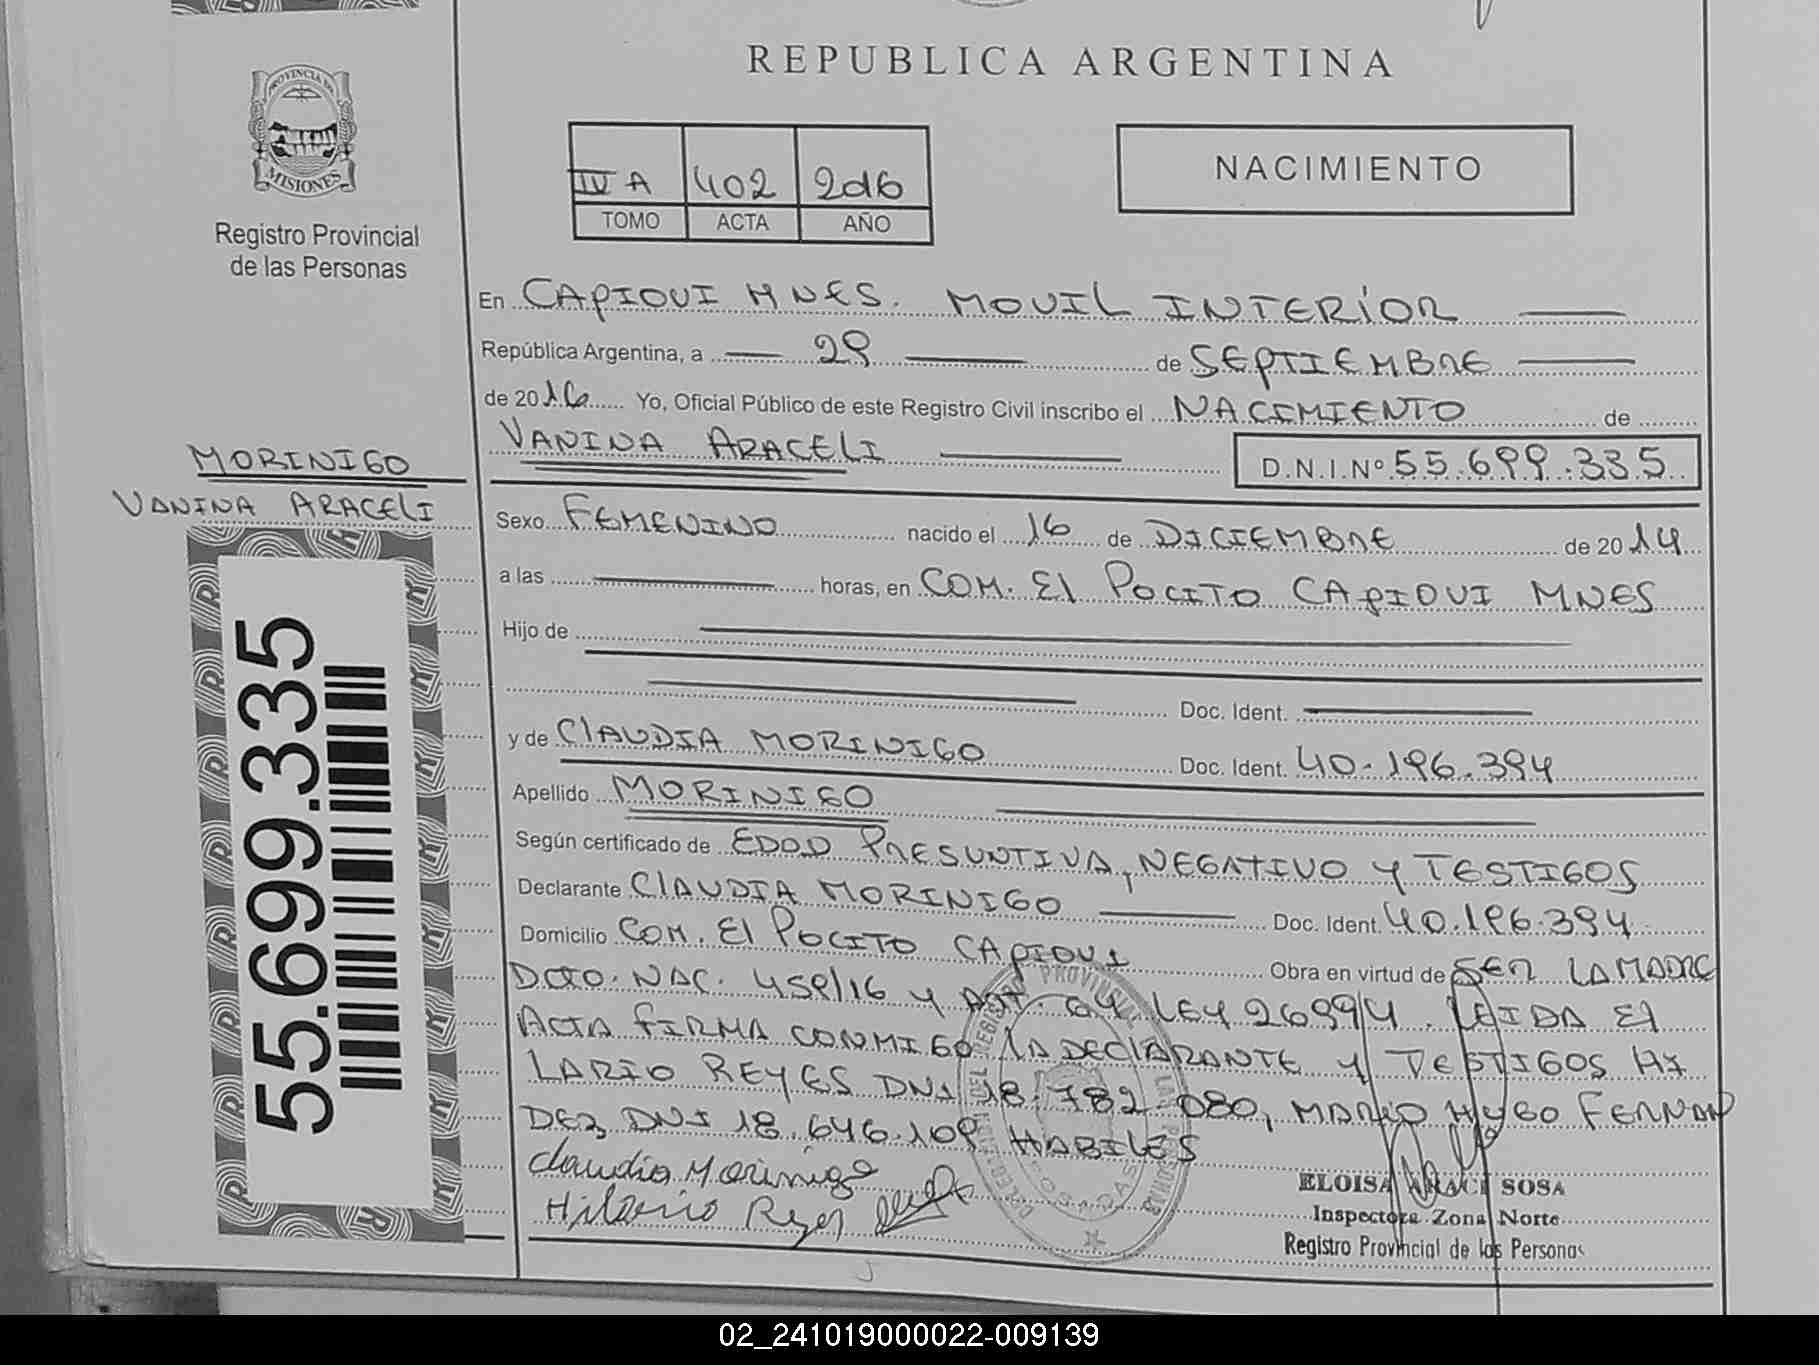 REPUBLICA ARGENTINA
PROVINCIA DE
MISIONES
Registro Provincial
de las Personas
IV A 402 2016
TOMO ACTA AÑO
NACIMIENTO
En CAPIOVI MNES. MOVIL INTERIOR
República Argentina, a 29 de SEPTIEMBRE
de 2016 Yo, Oficial Público de este Registro Civil inscribo el NACIMIENTO de
VANINA ARACELI D.N.I.Nº 55.699.335
MORINIGO
VANINA ARACELI
Sexo FEMENINO nacido el 16 de DICIEMBRE de 2014
a las horas, en COM. El POCITO CAPIOVI MNES
Hijo de
Doc. Ident.
y de ClAUDIA MORINIGO Doc. Ident. 40.196.394
Apellido MORINIGO
Según certificado de EDAD PRESUNTIVA, NEGATIVO Y TESTIGOS
Declarante ClAUDIA MORINIGO Doc. Ident. 40.196.394
Domicilio COM. El POCITO CAPIOVI Obra en virtud de SER LA MADRE
DCTO. NAC. 459/16 Y ART 64 LEY 26994. LEIDA El
ACTA FIRMA CONMIGO LA DEClARANTE Y TESTIGOS HI
LARIO REYES DNI 18.782.080, MARIO HUGO FERNAN
DEZ DNI 18.646.109 HABILES
Claudia Morinigo
Hilario Reyes
ELOISA ARACI SOSA
Inspectora Zona Norte
Registro Provincial de las Personas
55.699.335
02_241019000022-009139